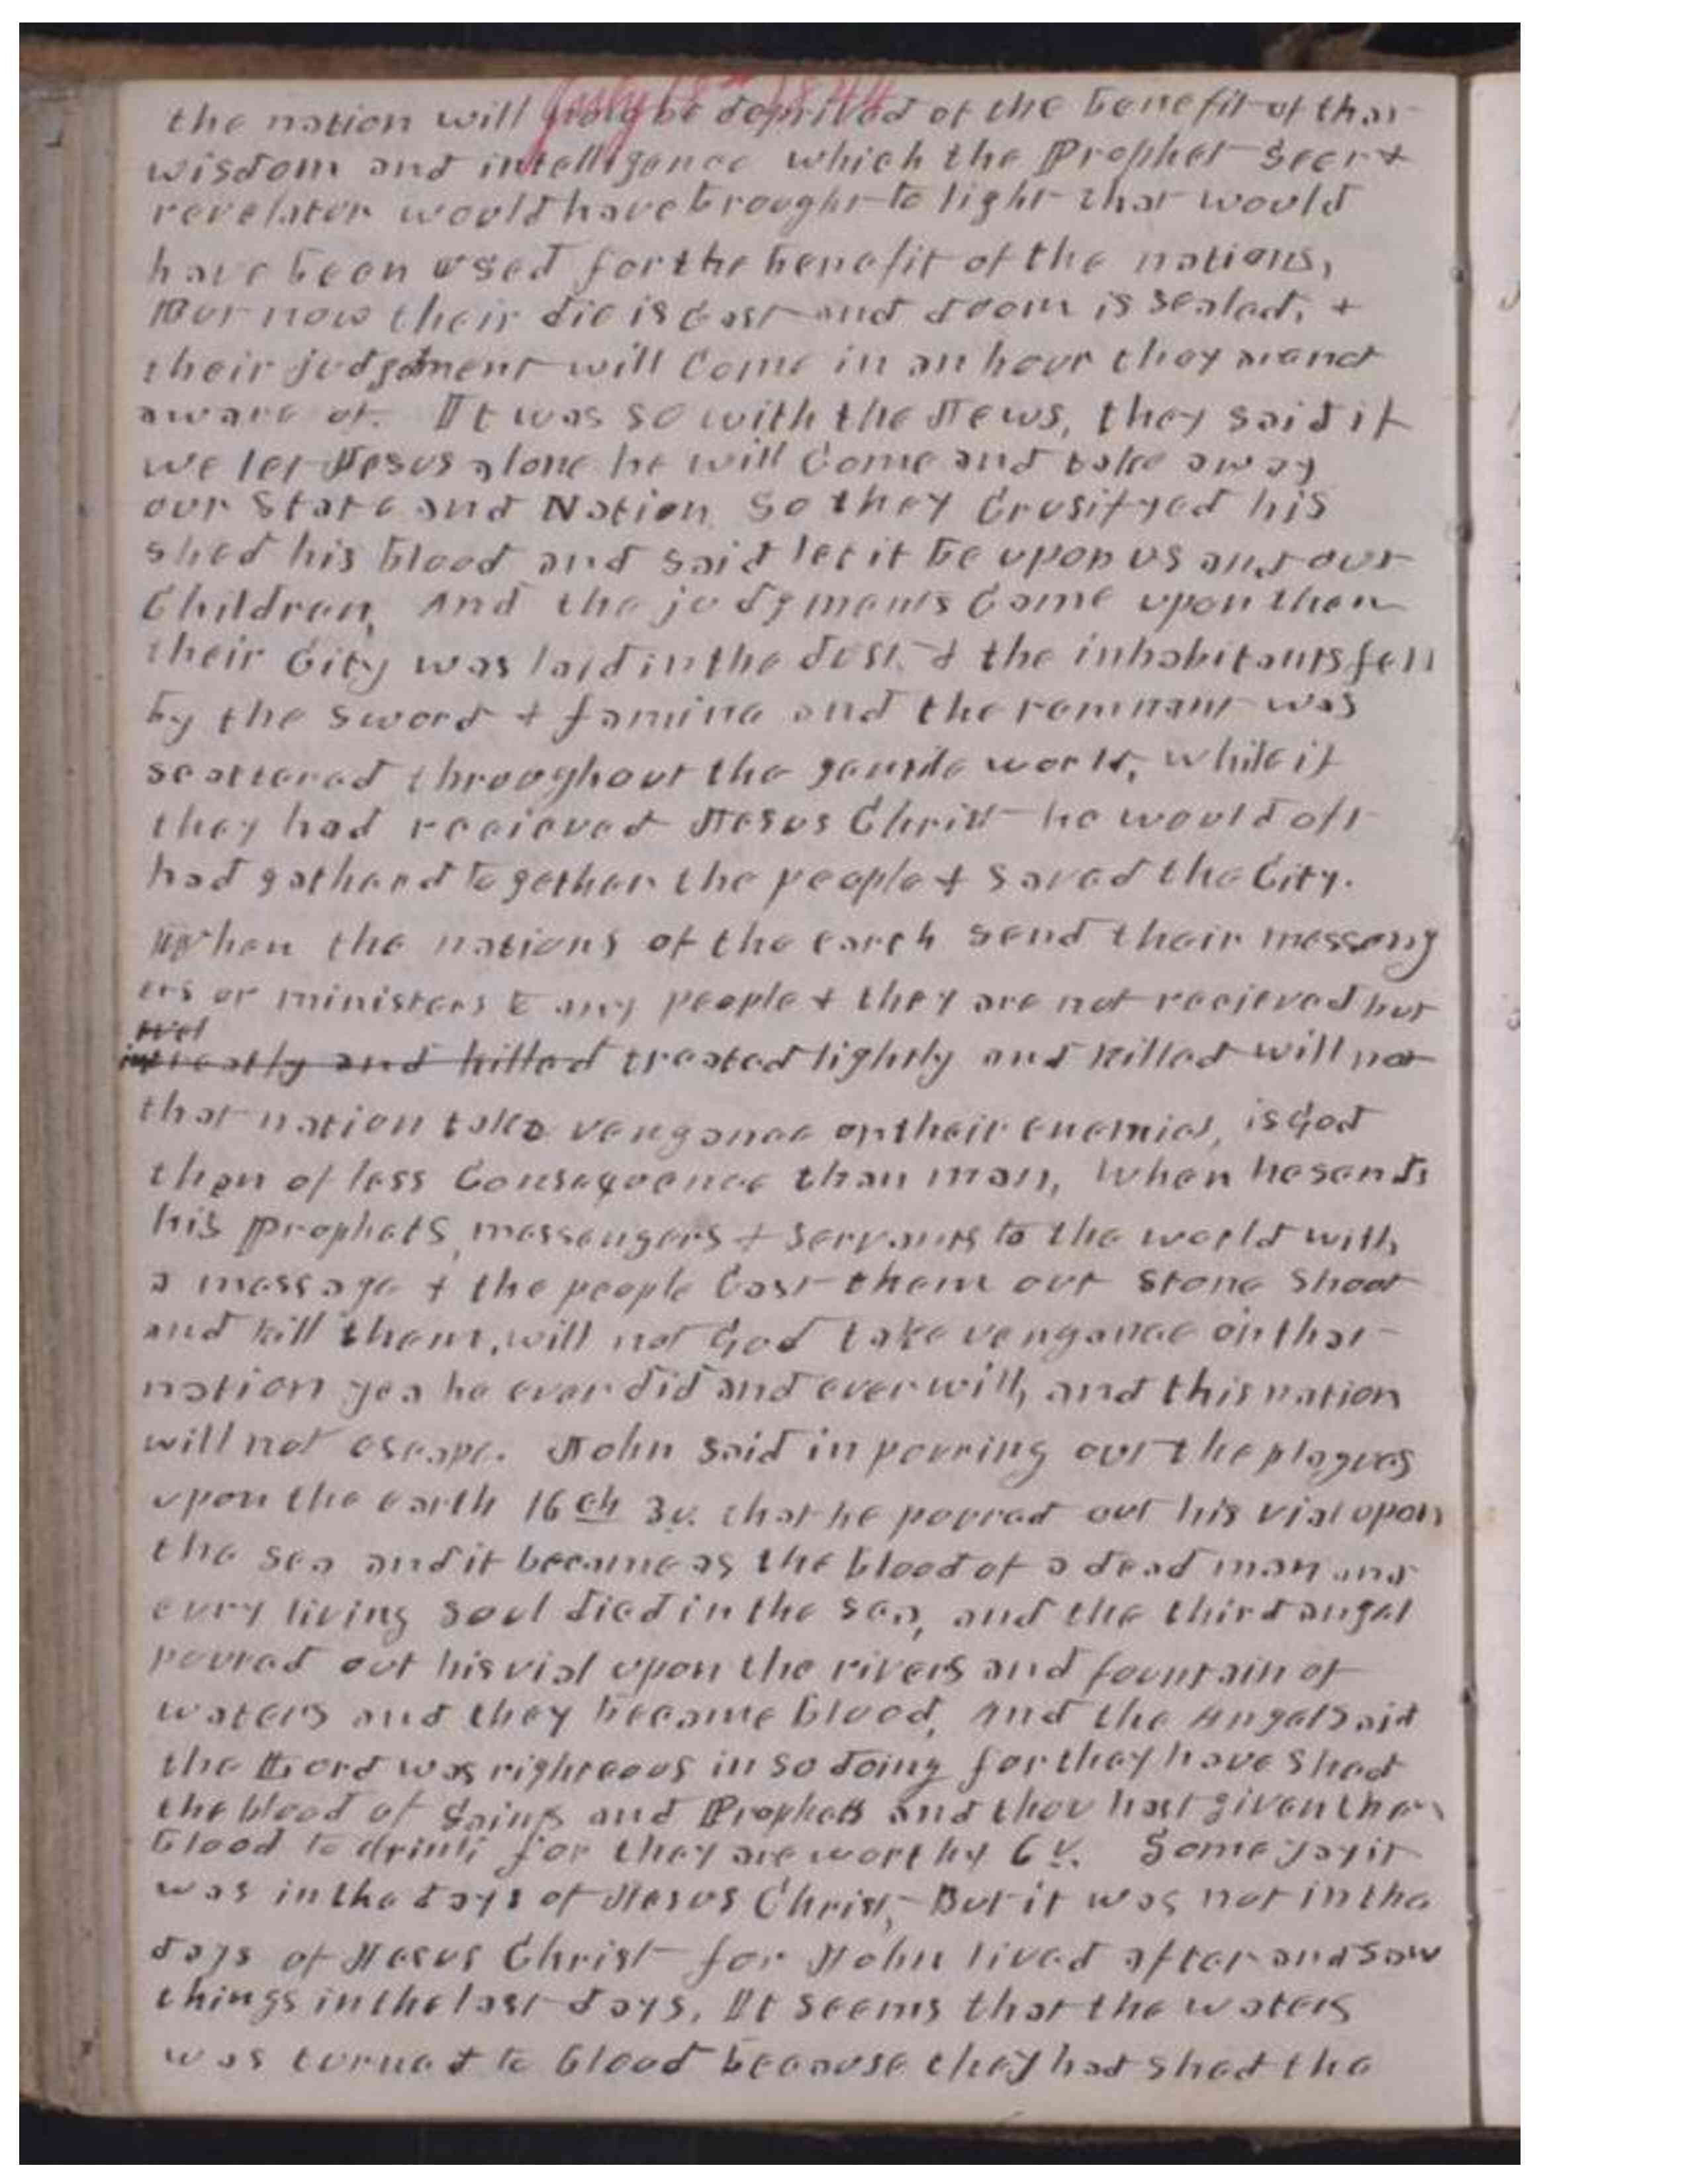 July 18th 1844
the nation will ownly be deprived of the benefit of that
wisdom and intelligence which the Prophet Seer &
revelator would have brought to light that would
have been used for the benefit of the nations,
But now their die is Cast and doom is sealed, &
their judgement will Come in an hour they are not
aware of. It was so with the Jews, they said if
we let Jesus alone he will Come and take away
our State and Nation So they Crusifyed his
shed his blood and said let it be upon us and our
Children, And the judgments Came upon them
their City was laid in the dust & the inhabitants fell
by the sword & famine and the remnant was
scattered throughout the gentile world, while if
they had recieved Jesus Christ he would oft
had gatherd together the people & saved the City.
When the nations of the earth send their messeng
ers or ministers to any people & they are not recieved but
treated lightly and killed will not
that nation take vengance on their enemies, is God
then of less Consequence than man, When he sends
his Prophets, messengers & servants to the world with
a message & the people Cast them out stone shoot
and kill them, will not God take vengance on that
nation yea he ever did and ever will, and this nation
will not escape. John said in pouring out the plagues
upon the earth 16 ch 3 v. that he poured out his vial upon
the sea and it became as the blood of a dead man and
evry living soul died in the sea, and the third angel
poured out his vial upon the rivers and fountain of
waters and they became blood, And the Angel said
the Lord was righteous in so doing for they have shed
the blood of Saints and Prophets and thou hast given them
blood to drink for they are worthy 6 v. Some say it
was in the days of Jesus Christ, But it was not in the
days of Jesus Christ for John lived after and saw
things in the last days, It seems that the waters
was turned to blood because they had shed the